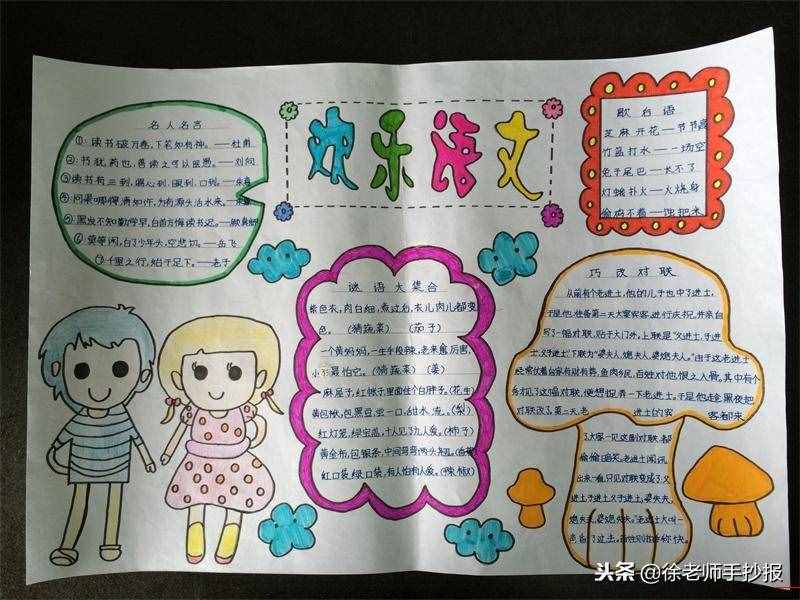 欢乐语文
名人名言
①：读书破万卷，下笔如有神。——杜甫
②：书犹药也，善读之可以医愚。——刘向
③读书有三到，谓心到，眼到，口到。——朱熹
④：问渠哪得清如许，为有源头活水来。——朱熹
⑤：黑发不知勤学早，白首方悔读书迟。——颜真卿
⑥：莫等闲，白了少年头，空悲切。——岳飞
⑦千里之行，始于足下。——老子
歇后语
芝麻开花——节节高
竹篮打水——一场空
兔子尾巴——长不了
灯蛾扑火——火烧身
偷鸡不着——蚀把米
谜语大集合
紫色衣，肉白细，煮过后，衣儿肉儿都变
色。（猜蔬菜）（茄子）
一个黄妈妈，一生手段辣，老来愈厉害，
小孩最怕它。（猜蔬菜）（姜）
麻屋子，红帐子，里面住个白胖子。（花生）
黄包袱，包黑豆，尝一口，甜水流。（梨）
红灯笼，绿宝盖，十人见了九人爱。（柿子）
黄金布，包银条，中间弯弯两头翘。（香蕉
红口袋，绿口袋，有人怕有人爱。（辣椒）
巧改对联
从前有个老进士，他的儿子也中了进士，
于是他准备第二天大宴宾客，进行庆祝，并亲自
写了一幅对联，贴于大门外。上联是“父进士，子进
士，父子进士”下联为“婆夫人，媳夫人，婆媳夫人。”由于这老进士
经常仗着自家有财有势，鱼肉乡民，百姓对他恨之入骨，其中有个
秀才见了这幅对联，便想捉弄一下老进士。于是他趁黑夜把
对联改了。第二天，老 进士的宾 客都来
了，大家一见这副对联，都
偷偷暗笑。老进士闻讯
出来一看，只见对联变成了“父
进土，子进土，父子进土，婆失夫，
媳失夫，婆媳失夫。”老进士大叫一
头条@徐老师手抄报